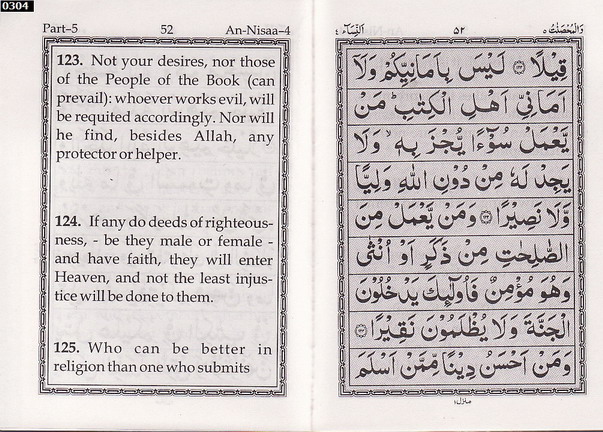 0304
Part–5 52 An-Nisaa–4
123. Not your desires, nor those
of the People of the Book (can
prevail): whoever works evil, will
be requited accordingly. Nor will
he find, besides Allah, any
protector or helper.
124. If any do deeds of righteous-
ness, - be they male or female -
and have faith, they will enter
Heaven, and not the least injus-
tice will be done to them.
125. Who can be better in
religion than one who submits
وَالْمُحْصَنٰتُ ٥ ٥٢ اَلنِّسَآء ٤
قِيْلًا ۝۱۲۲ لَيْسَ بِاَمَانِيِّكُمْ وَلَاۤ
اَمَانِيِّ اَهْلِ الْكِتٰبِ ؕ مَنْ
يَّعْمَلْ سُوْٓءًا يُّجْزَ بِهٖ ۙ وَلَا
يَجِدْ لَهٗ مِنْ دُوْنِ اللّٰهِ وَلِيًّا
وَّلَا نَصِيْرًا ۝۱۲۳ وَمَنْ يَّعْمَلْ مِنَ
الصّٰلِحٰتِ مِنْ ذَكَرٍ اَوْ اُنْثٰى
وَهُوَ مُؤْمِنٌ فَاُولٰٓئِكَ يَدْخُلُوْنَ
الْجَنَّةَ وَلَا يُظْلَمُوْنَ نَقِيْرًا ۝۱۲۴
وَمَنْ اَحْسَنُ دِيْنًا مِّمَّنْ اَسْلَمَ
منزل ۱